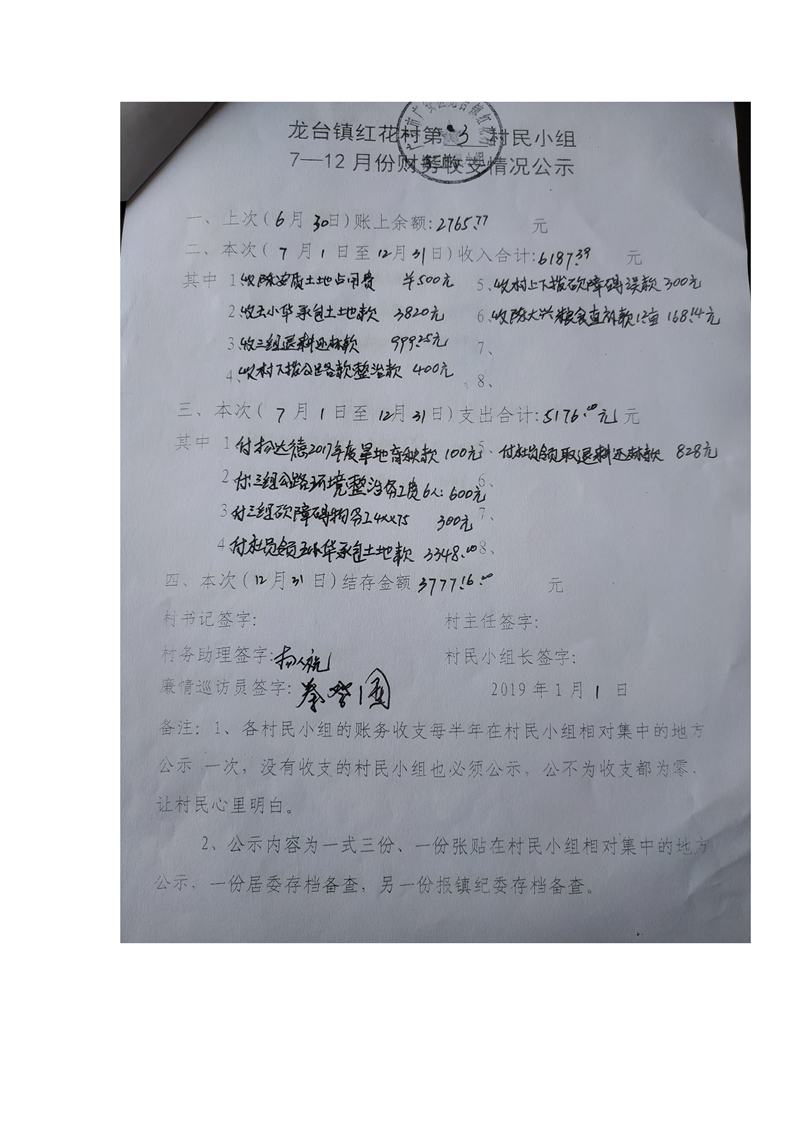 龙台镇红花村第 3 村民小组
7—12月份财务收支情况公示
一、上次(6月30日)账上余额:2765.77 元
二、本次(7月1日至12月31日)收入合计:6187.39 元
其中 1收陈安质土地占用费 半500元 5、收村上下拨砍障碍误款300元
2收王小华承包土地款 3820元 6、收陈大兴粮食直补款12亩 168.14元
3收三组退耕还林款 999.25元 7、
4、收村下拨公路款整治款 400元 8、
三、本次(7月1日至12月31日)支出合计:5176.00元 元
其中 1付杨达德2017年度旱地育秧款100元 5、付社员领取退耕还林款 828元
2付三组公路环境整治务工费6人:600元 6、
3付三组砍障碍物务工4x75 300元 7、
4付社员领王小华承包土地款 3348.00 8、
四、本次(12月31日)结存金额3777.16 元
村书记签字: 村主任签字:
村务助理签字: 村民小组长签字:
廉情巡访员签字: 2019年1月1日
备注:1、各村民小组的账务收支每半年在村民小组相对集中的地方
公示 一次,没有收支的村民小组也必须公示,公不为收支都为零,
让村民心里明白。
2、公示内容为一式三份、一份张贴在村民小组相对集中的地方
公示,一份居委存档备查,另一份报镇纪委存档备查。